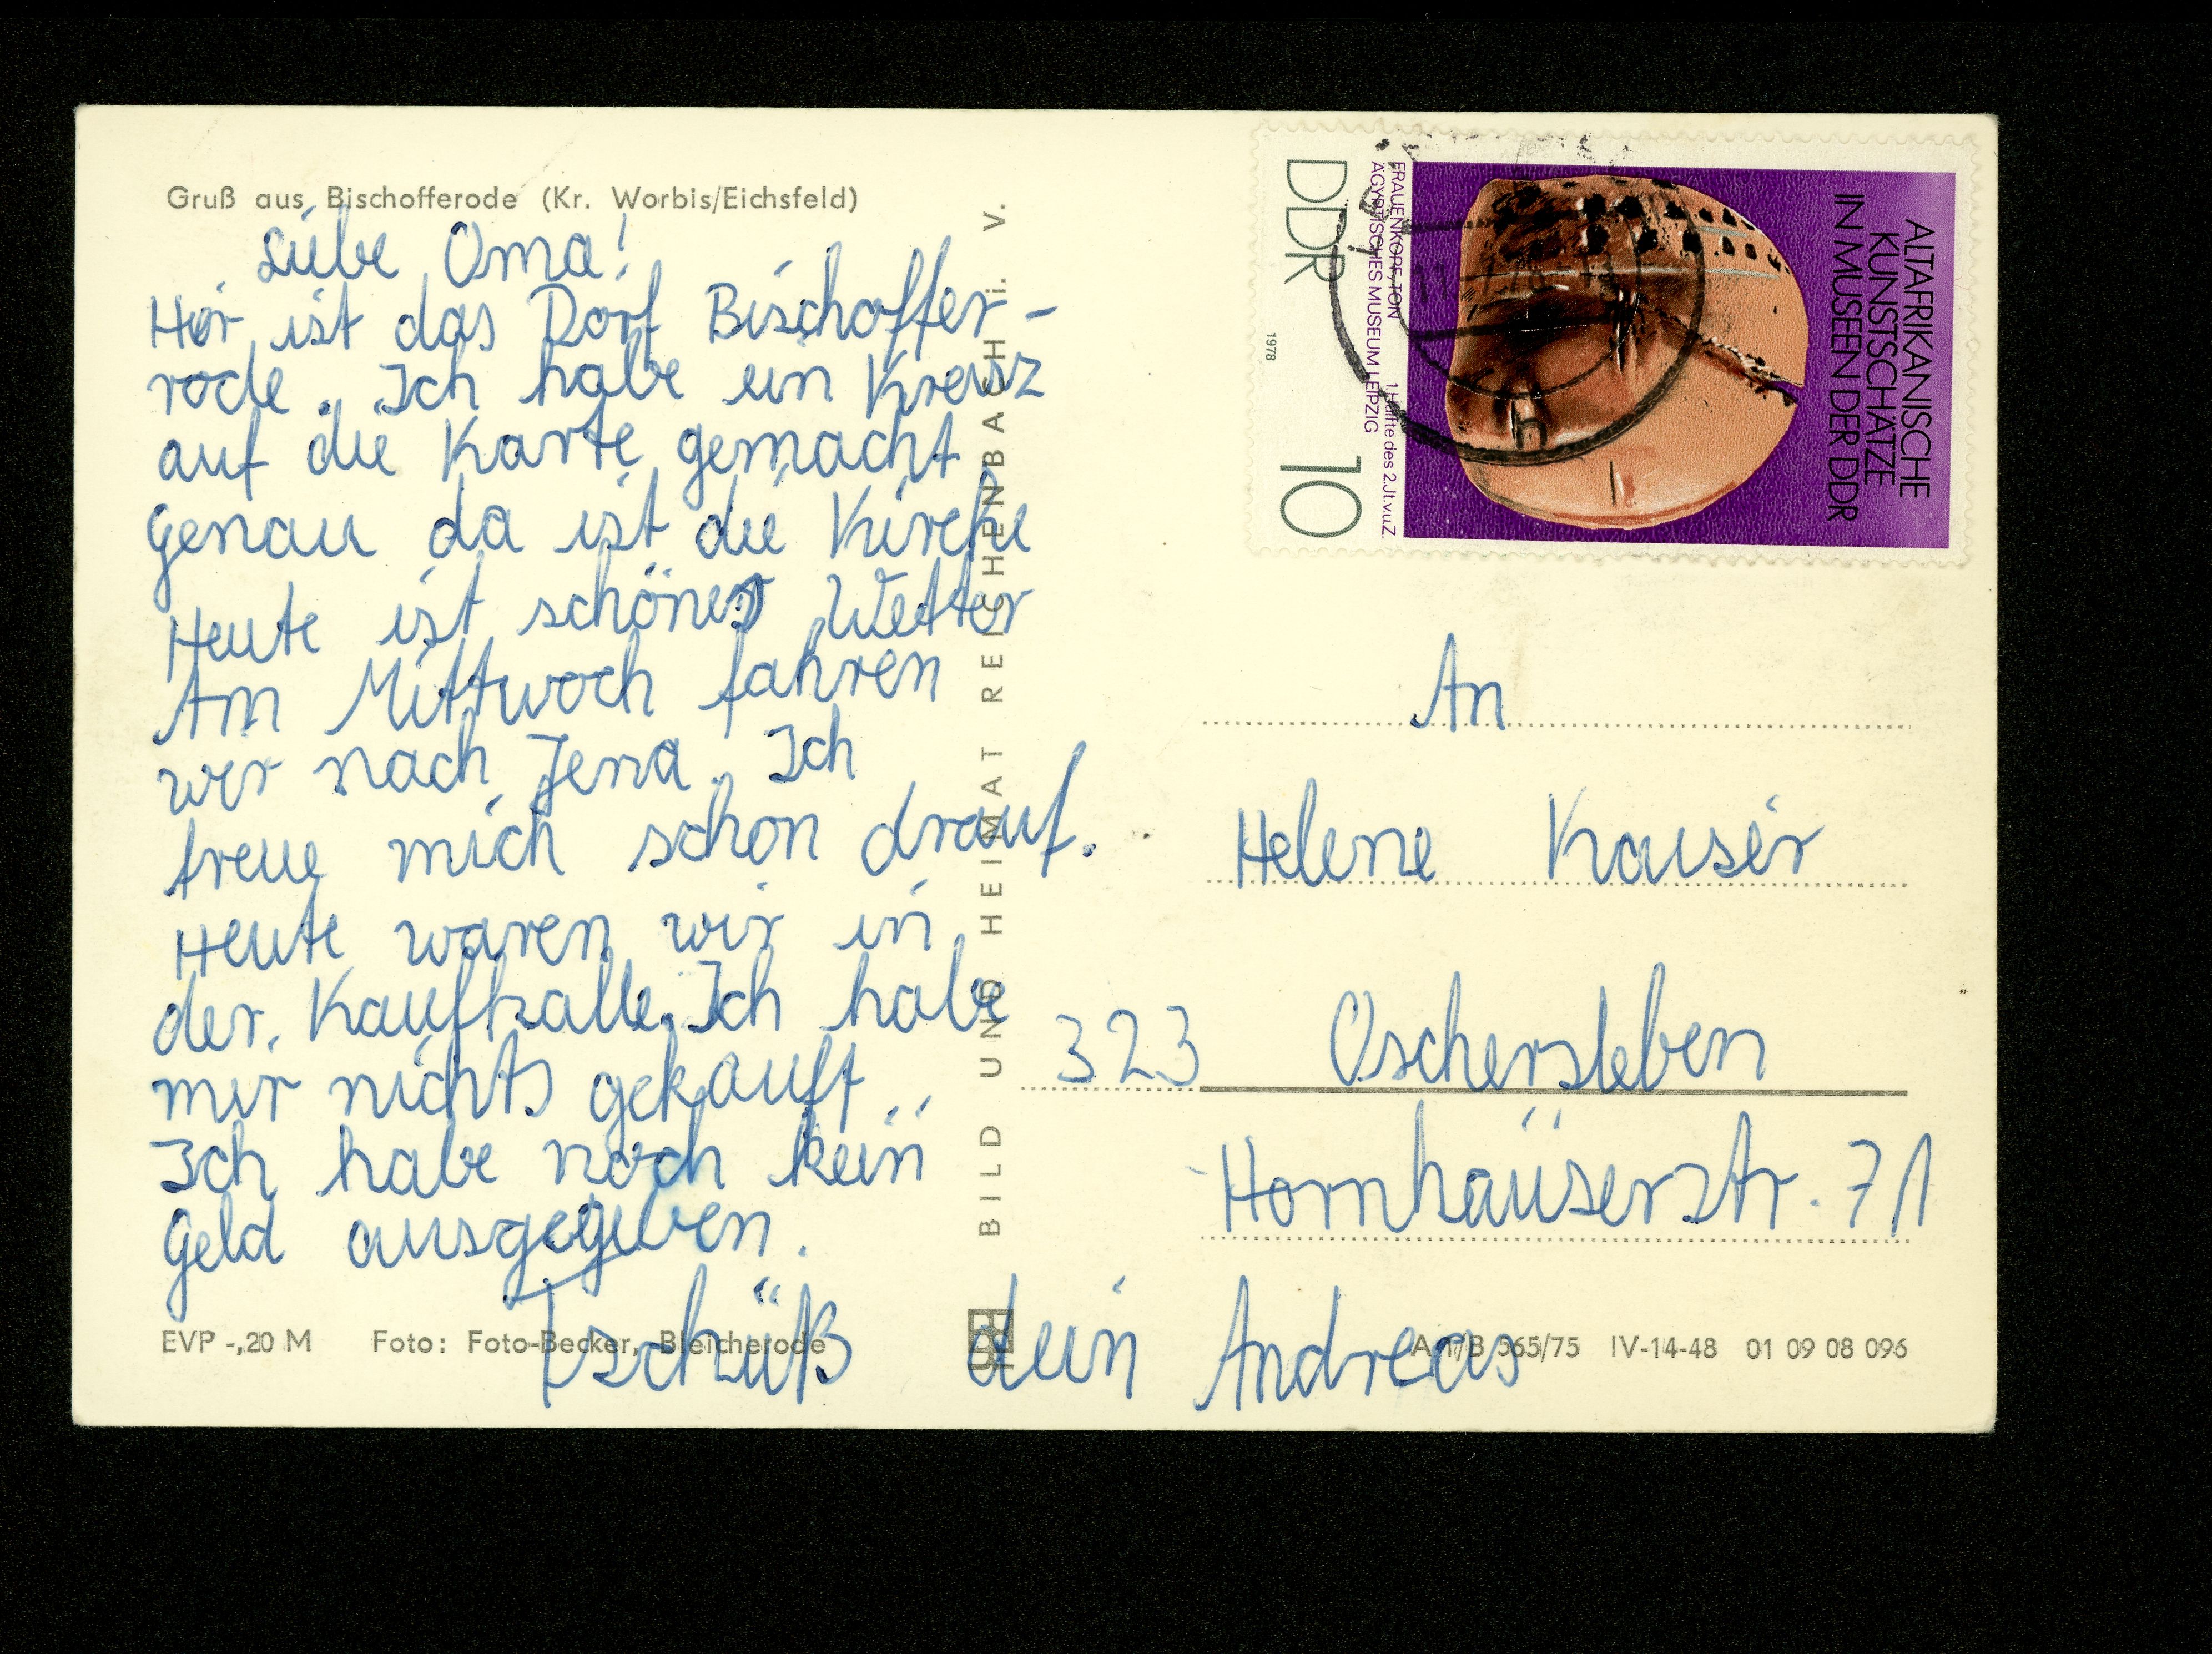 Gruß aus Bischofferode (Kr. Worbis/Eichsfeld)
Liebe Oma!
Hier ist das Dorf Bischoffer-
rode. Ich habe ein Kreuz
auf die Karte gemacht
genau da ist die Kirche
Heute ist schönes Wetter
Am Mittwoch fahren
wir nach Jena. Ich
freue mich schon drauf.
Heute waren wir in
der Kaufhalle. Ich habe
mir nichts gekauft.
Ich habe noch kein
Geld ausgegeben.
Tschüß dein Andreas
EVP -,20 M Foto: Foto-Becker, Bleicherode
BILD UND HEIMAT REICHENBACH i. V.
DDR
10
1978
FRAUENKOPF, TON 1. Hälfte des 2. Jt. v. u. Z.
ÄGYPTISCHES MUSEUM LEIPZIG
ALTAFRIKANISCHE
KUNSTSCHÄTZE
IN MUSEEN DER DDR
An
Helene Kaiser
323 Oschersleben
Hornhäuserstr. 71
565/75 IV-14-48 01 09 08 096